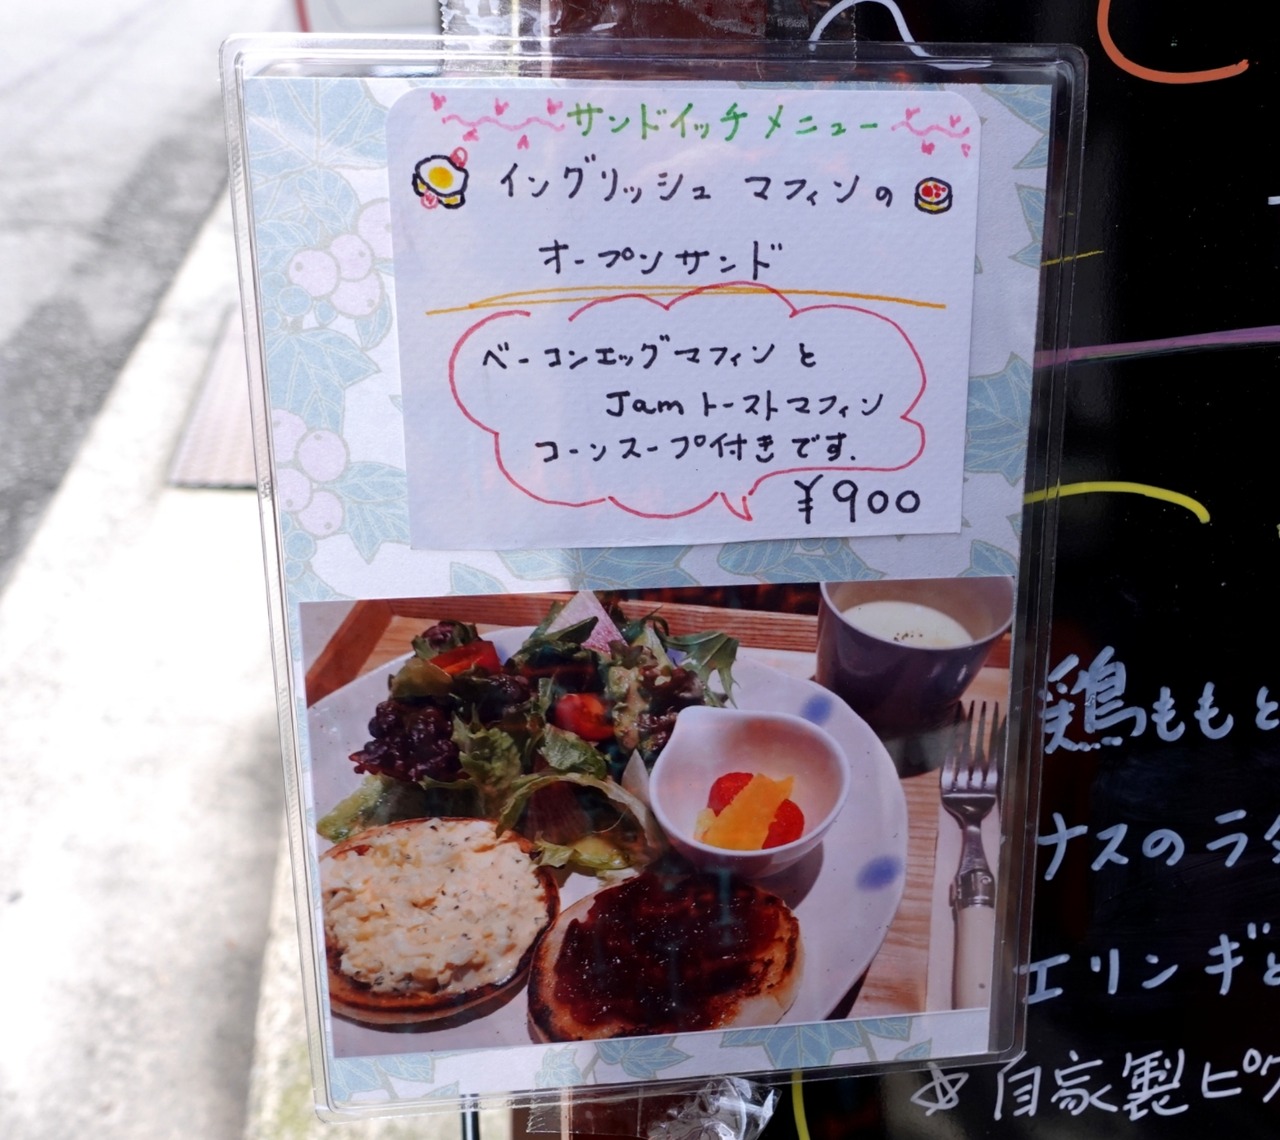 サンドイッチメニュー
イングリッシュ マフィンの
オープンサンド
ベーコンエッグマフィンと
Jamトーストマフィン
コーンスープ付きです.
¥900
鶏ももと
ナスのラタ
エリンギと
☆自家製ピク